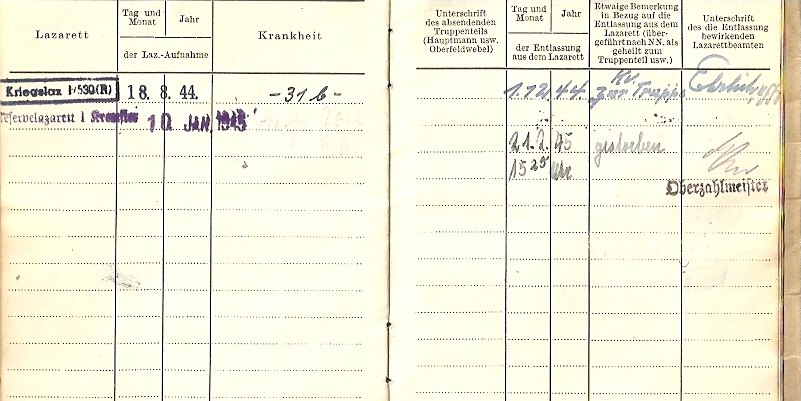 Lazarett
Tag und
Monat
Jahr
der Laz.-Aufnahme
Krankheit
Kriegslaz
18. 8. 44.
-31b-
Reservelazarett I
10. JAN. 1945
Unterschrift
des absendenden
Truppenteils
(Hauptmann usw.
Oberfeldwebel)
Tag und
Monat
Jahr
der Entlassung
aus dem Lazarett
Etwaige Bemerkung
in Bezug auf die
Entlassung aus dem
Lazarett (über-
geführt nach NN. als
geheilt zum
Truppenteil usw.)
Unterschrift
des die Entlassung
bewirkenden
Lazarettbeamten
1.12.44.
Kv.
zur Truppe
Ehrlich,
21.2. 45
gestorben
15 25 Uhr
Oberzahlmeister